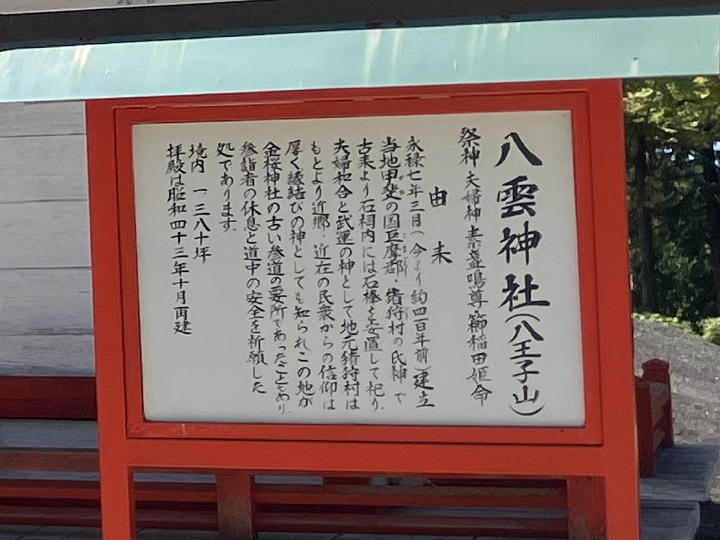 八雲神社(八王子山)
祭神 夫婦神 素盞嗚尊 ・ 御稲田姫命
由来
永禄七年三月(今より約四百年前)建立
当地甲斐の国巨摩郡・猪狩村の氏神で
古来より石祠内には石棒を安置して祀り、
夫婦和合と武運の神として地元猪狩村は
もとより近郷・近在の民衆からの信仰は
厚く縁結びの神としても知られこの地が
金桜神社の古い参道の要所であったこともあり
参詣者の休息と道中の安全を祈願した
処であります。
境内 一三八十坪
拝殿は昭和四十三年十月再建